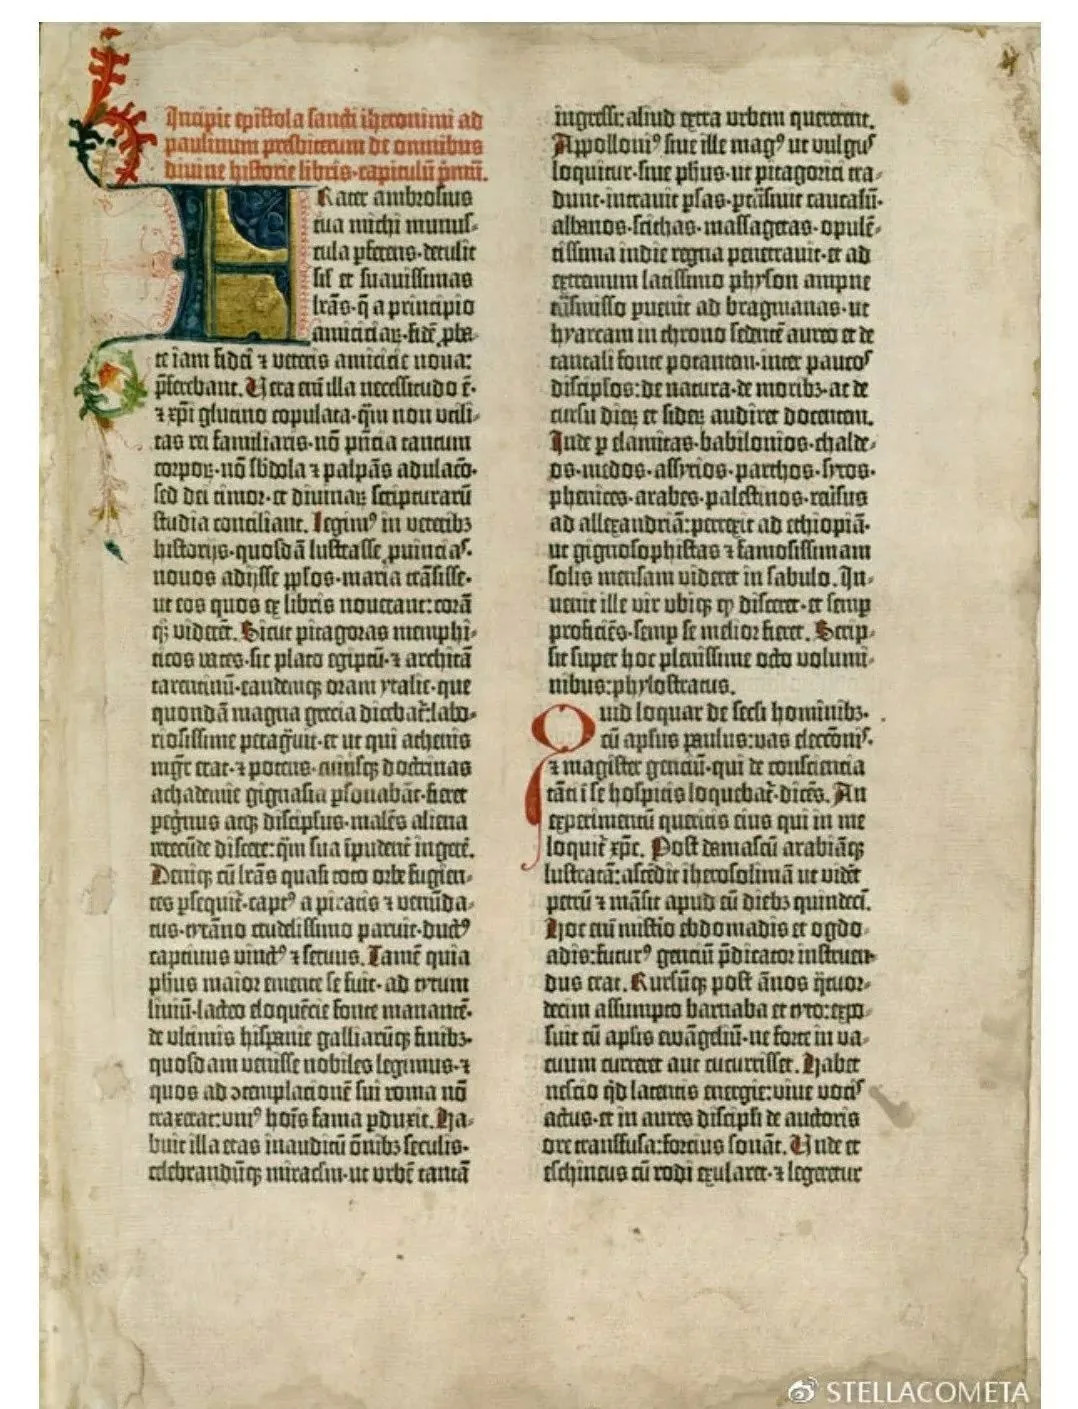 Incipit epistola sancti iheronimi ad
paulinum presbiterum de omnibus
divine historie libris·capitulū p̄mū.
Frater ambrosius
tua michi munus-
cula pferens·detulit
sil̄ et suavissimas
lrās·q̄ a principio
amiciciaꝝ·fidē ꝓba-
te iam fidei ⁊ veteris amicicie nova:
pferebant. Vera em̄ illa necessitudo ē·
⁊ xp̄i glutino copulata·q̄m non utili-
tas rei familiaris·nō pn̄cia tantum
corporꝝ·nō sb̄dola ⁊ palpās adulacō·
sed dei timor·et divinaꝝ scripturarū
studia conciliant. Legimꝰ in veteribꝫ
historijs·quosdā lustrasse ꝓvincias·
novos adijsse pplos·maria trāsisse·
ut eos quos ex libris noverant: corā
qꝫ viderēt. Sicut pitagoras memphi-
ticos vates·sic plato egiptū·⁊ architā
tarentinū·eandemqꝫ oram ytalie·que
quondā magna grecia dicebat̄: labo-
riosissime peragravit·et ut qui athenis
mgr̄ erat·⁊ potens·cuiusqꝫ doctrinas
achademie gignasia psonabāt·fieret
pegrinus atqꝫ discipulus·malēs aliena
verecūde discere: q̄m sua īpudent̄ ingerē.
Deniqꝫ cū lrās quasi toto orbe fugien-
tes psequit̄·captꝰ a piratis ⁊ venūda-
tus·tyrāno crudelissimo paruit·ductꝰ
captivus vinctꝰ ⁊ servus. Tamē quia
phus maior emente se fuit·ad tytum
livium·lacteo eloquētie fonte manantē·
de ultimis hispanie galliarūqꝫ finibꝫ·
quosdam venisse nobiles legimus·⁊
quos ad ꝯtemplacionē sui roma nō
traxerat: uniꝰ hoīs fama pduxit. Ha-
buit illa etas inauditū ōnibꝫ seculis·
celebrandūqꝫ miraclm·ut urbē tantā
ingressi: aliud extra urbem quererent.
Appolloniꝰ sive ille magꝰ ut vulgus
loquitur·sive phus·ut pitagorici tra-
dunt·intravit psas·ptrāsivit caucasū·
albanos·scithas·massagetas·opulē-
tissima indie regna penetravit·et ad
extremum latissimo physon ampne
trāsmisso pvenit ad bragmanas·ut
hyarcam in throno sedentē aureo et de
tantali fonte potantem·inter paucos
disciplos: de natura·de moribꝫ·ac de
cursu dieꝝ et sideꝝ audiret docentem.
Inde p elamitas·babilonios·chalde-
os·medos·assyrios·parthos·syros·
phenices·arabes·palestinos·revsus
ad allexandriā: perrexit ad ethiopiā·
ut gignosophistas ⁊ famosissimam
solis mensam videret in sabulo. In-
venit ille vir ubiqꝫ qd̄ disceret·et semp
proficiēs·semp se melior fieret. Scrip-
sit super hoc plenissime octo volumi-
nibus: phylostratus.
Quid loquar de secli hominibꝫ·
cū aplus paulus: vas eleccōnis·
⁊ magister genciū·qui de consciencia
tāti ī se hospitis loquebat̄·dicēs. An
experimentū queritis eius qui in me
loquit̄ xpc. Post damascū arabiāqꝫ
lustratā: ascēdit iherosolimā ut vidēt
petrū ⁊ māsit apud eū diebꝫ quindeci.
Hoc em̄ mistio ebdomadis et ogdo-
adis: futurꝰ genciū pdicator instruen-
dus erat. Rursūqꝫ post ānos q̄tuor-
decim assumpto barnaba et tyto: expo-
suit cū aplis ewāgeliū·ne forte in va-
cuum curreret aut cucurrisset. Habet
nescio qd̄ latentis energie: vive vocis
actus·et in aures discipli de auctoris
ore transfusa: forcius sonāt. Unde et
eschineus cū rodi exularet·⁊ legeretur
STELLACOMETA